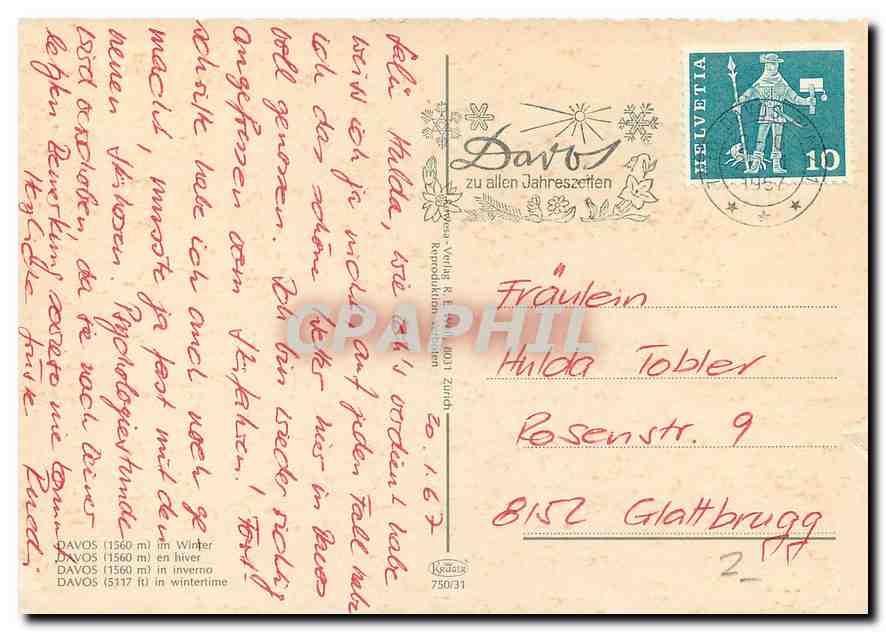 20.1.67
Salü Hulda, wie ich's verdient habe
weiss ich ja nicht, auf jeden Fall habe
ich das schöne Wetter hier in Davos
voll genossen. Ich bin wieder richtig
angefressen vom Skifahren! Fort-
schritte habe ich auch noch ge-
macht, musste ja fast mit den
neuen Skihosen. Psychologiestunde
wird verschoben, da sie nach deiner
letzten Bemerkung
Herzliche Grüsse Ruedi
HELVETIA
10
1967
Davos
zu allen Jahreszeiten
Fräulein
Hulda Tobler
Rosenstr. 9
8152 Glattbrugg
2
Verlag
8031 Zürich
Reproduktion verboten
Krüger
750/31
DAVOS (1560 m) im Winter
DAVOS (1560 m) en hiver
DAVOS (1560 m) in inverno
DAVOS (5117 ft) in wintertime
CPAPHIL